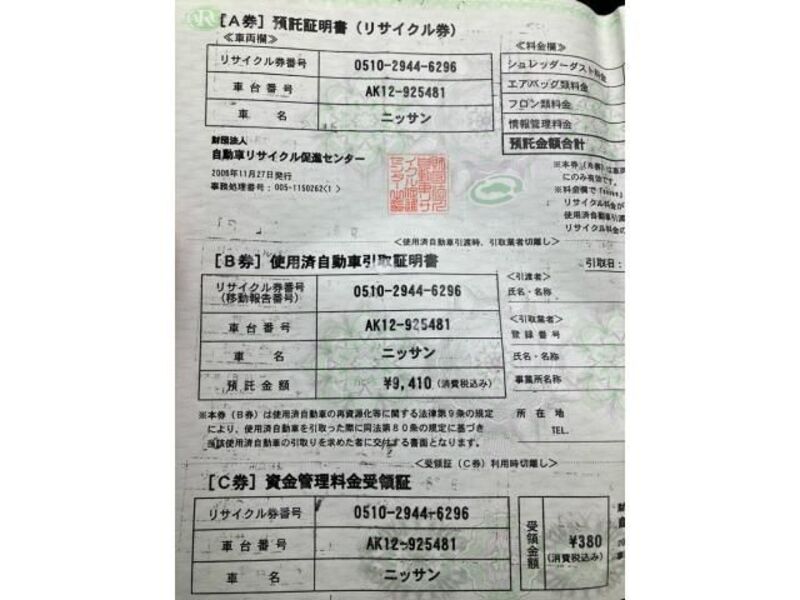 [A券] 預託証明書 (リサイクル券)
≪車両欄≫
≪料金欄≫
リサイクル券番号 0510-2944-6296
車台番号 AK12-925481
車名 ニッサン
シュレッダーダスト料金
エアバッグ類料金
フロン類料金
情報管理料金
預託金額合計
財団法人
自動車リサイクル促進センター
2006年11月27日発行
事務処理番号:005-1150262<1 >
にのみ有効です。
※料金欄で
リサイクル料金が
使用済自動車引渡
リサイクル料金の
<使用済自動車引渡時、引取業者切離し>
[B券] 使用済自動車引取証明書
引取日:
リサイクル券番号
(移動報告番号)
0510-2944-6296
車台番号 AK12-925481
車名 ニッサン
預託金額 ¥9,410 (消費税込み)
<引渡者>
氏名・名称
<引取業者>
登録番号
氏名・名称
事業所名称
所在地
TEL.
※本券(B券)は使用済自動車の再資源化等に関する法律第9条の規定
により、使用済自動車を引取った際に同法第80条の規定に基づき
当該使用済自動車の引取りを求めた者に交付する書面となります。
<受領証(C券)利用時切離し>
[C券] 資金管理料金受領証
リサイクル券番号 0510-2944-6296
車台番号 AK12-925481
車名 ニッサン
受領金額
¥380
(消費税込み)